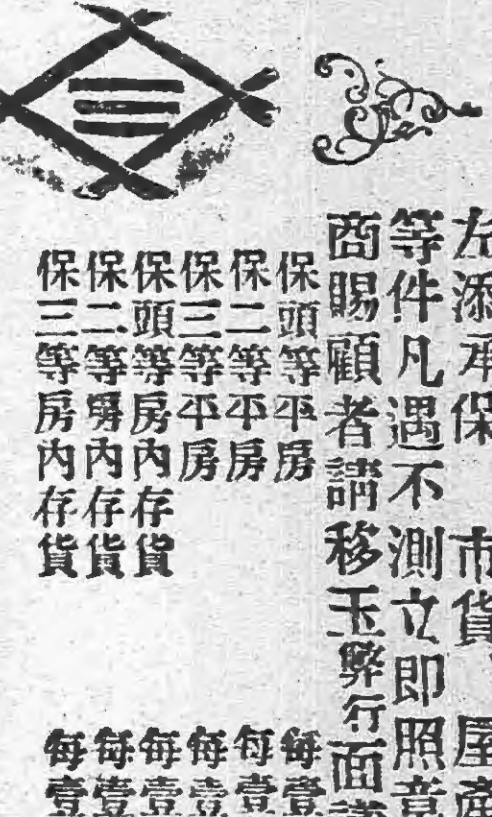 左添承保 市貨 屋產
等件凡遇不測立即照意
商賜顧者請移玉弊行面議
保頭等平房 每壹
保二等平房 每壹
保三等平房 每壹
保頭等房內存貨 每壹
保二等房內存貨 每壹
保三等房內存貨 每壹